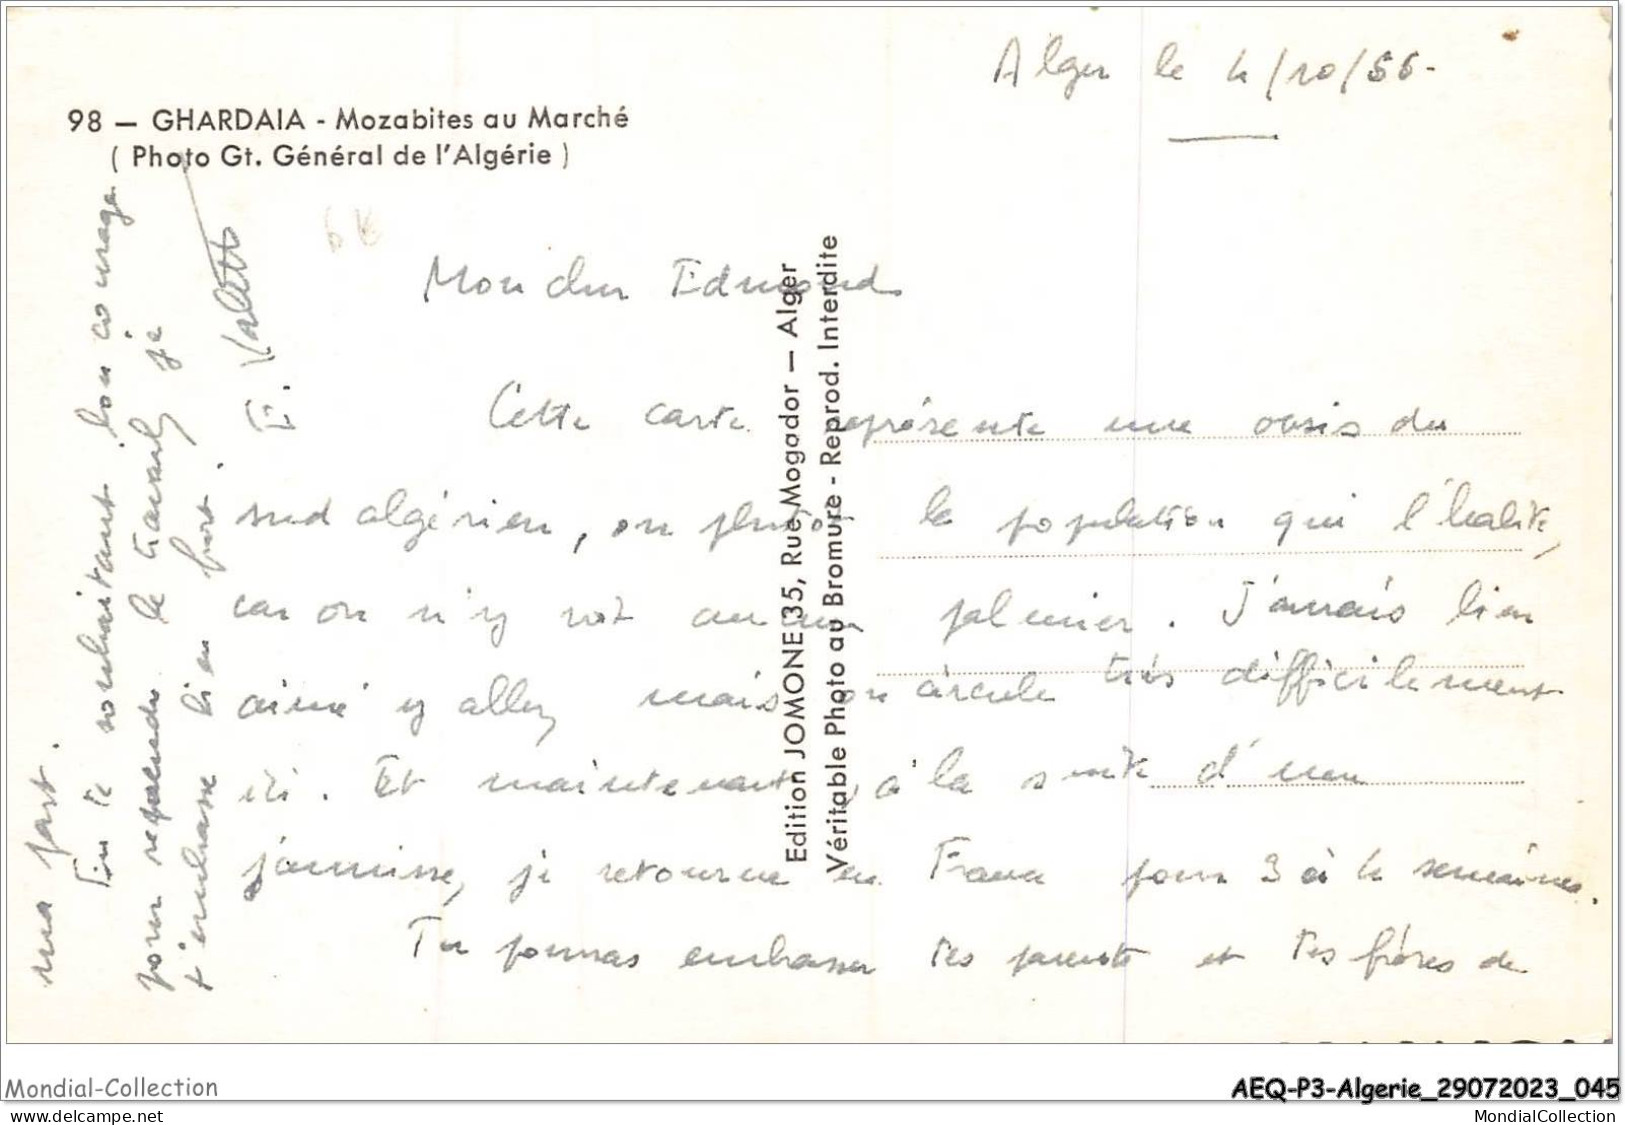 Alger le 4/10/56-
98 — GHARDAIA - Mozabites au Marché
( Photo Gt. Général de l'Algérie )
Mon cher Edmond
Cette carte représente une oasis du
sud algérien, ou plutôt la population qui l'habite,
car on n'y voit aucun palmier. J'aurais bien
aimé y aller, mais on circule très difficilement
ici. Et maintenant, à la suite d'une
jaunisse, je retourne en France pour 3 à 4 semaines.
Tu pourras embrasser tes parents et tes frères de
ma part.
En te souhaitant bon courage
pour reprendre le travail, je
t'embrasse bien fort.
E. Valetto
Edition JOMONE 35, Rue Mogador — Alger
Véritable Photo au Bromure - Reprod. Interdite
Mondial-Collection
AEQ-P3-Algerie_29072023_045
www.delcampe.net
MondialCollection